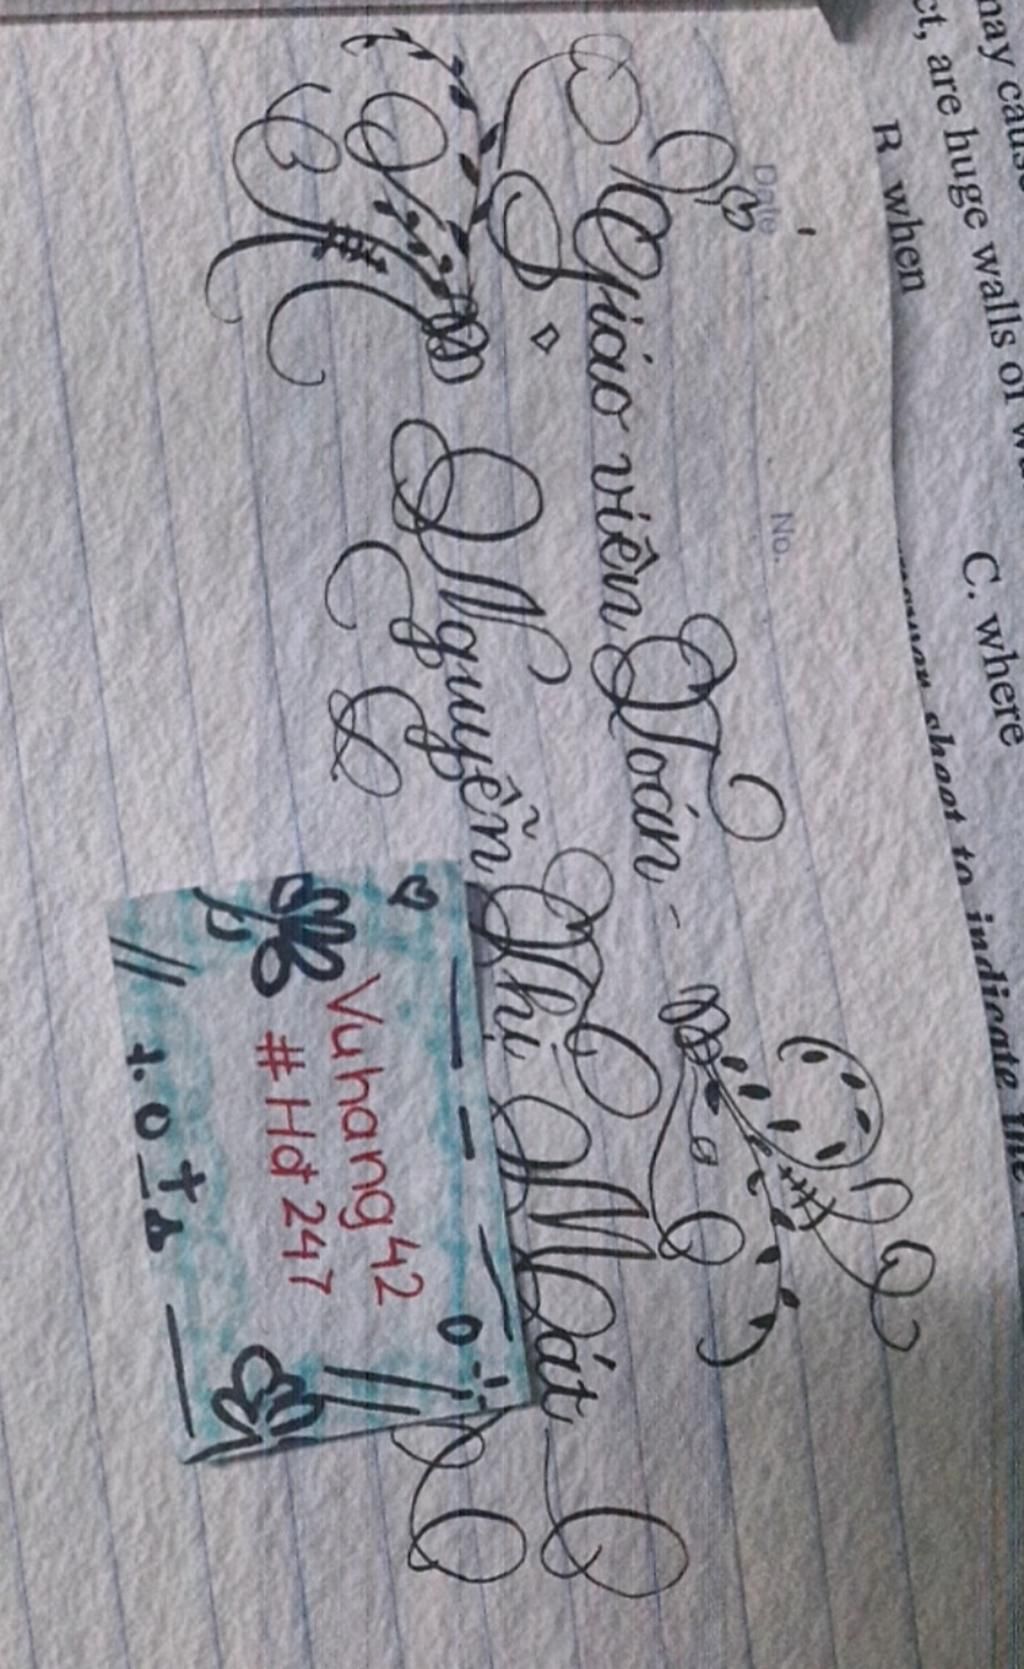 may cause
ct, are huge walls of wa
B when
C. where
answer sheet to indicate the
Date
No.
Giáo viên Toán -
Nguyễn Thị Mát
Vuhang42
#Hd247